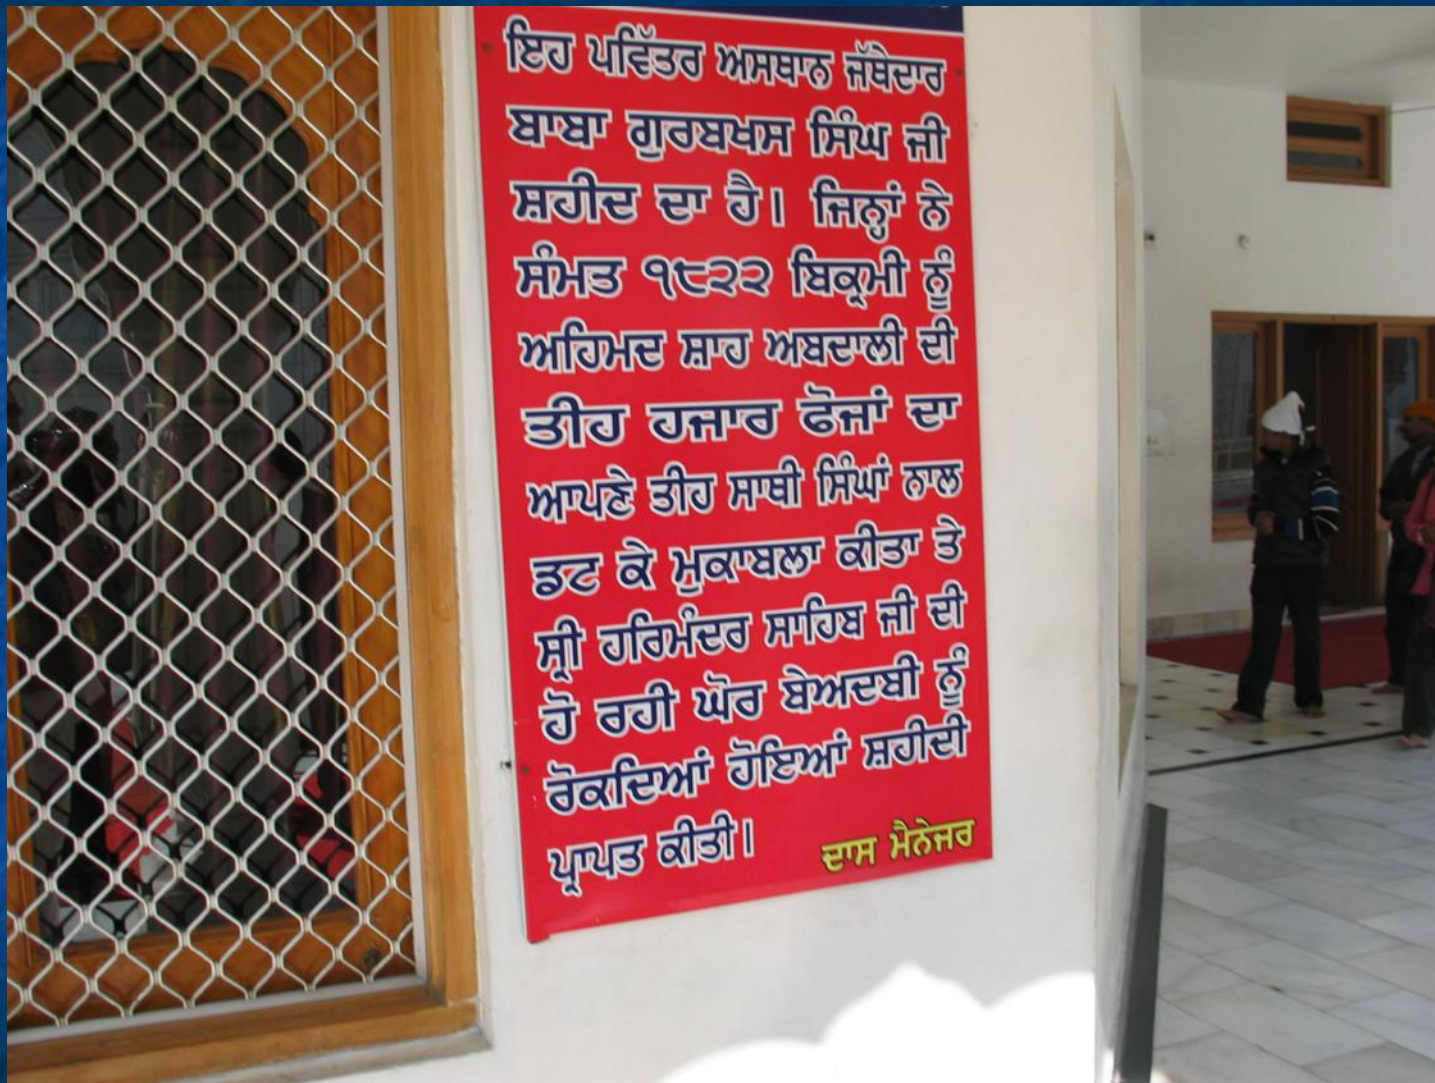 ਇਹ ਪਵਿੱਤਰ ਅਸਥਾਨ ਜੱਥੇਦਾਰ
ਬਾਬਾ ਗੁਰਬਖਸ ਸਿੰਘ ਜੀ
ਸ਼ਹੀਦ ਦਾ ਹੈ। ਜਿਨ੍ਹਾਂ ਨੇ
ਸੰਮਤ ੧੮੨੨ ਬਿਕ੍ਰਮੀ ਨੂੰ
ਅਹਿਮਦ ਸ਼ਾਹ ਅਬਦਾਲੀ ਦੀ
ਤੀਹ ਹਜਾਰ ਫੋਜਾਂ ਦਾ
ਆਪਣੇ ਤੀਹ ਸਾਥੀ ਸਿੰਘਾਂ ਨਾਲ
ਡਟ ਕੇ ਮੁਕਾਬਲਾ ਕੀਤਾ ਤੇ
ਸ੍ਰੀ ਹਰਿਮੰਦਰ ਸਾਹਿਬ ਜੀ ਦੀ
ਹੋ ਰਹੀ ਘੋਰ ਬੇਅਦਬੀ ਨੂੰ
ਰੋਕਦਿਆਂ ਹੋਇਆਂ ਸ਼ਹੀਦੀ
ਪ੍ਰਾਪਤ ਕੀਤੀ। ਦਾਸ ਮੈਨੇਜਰ